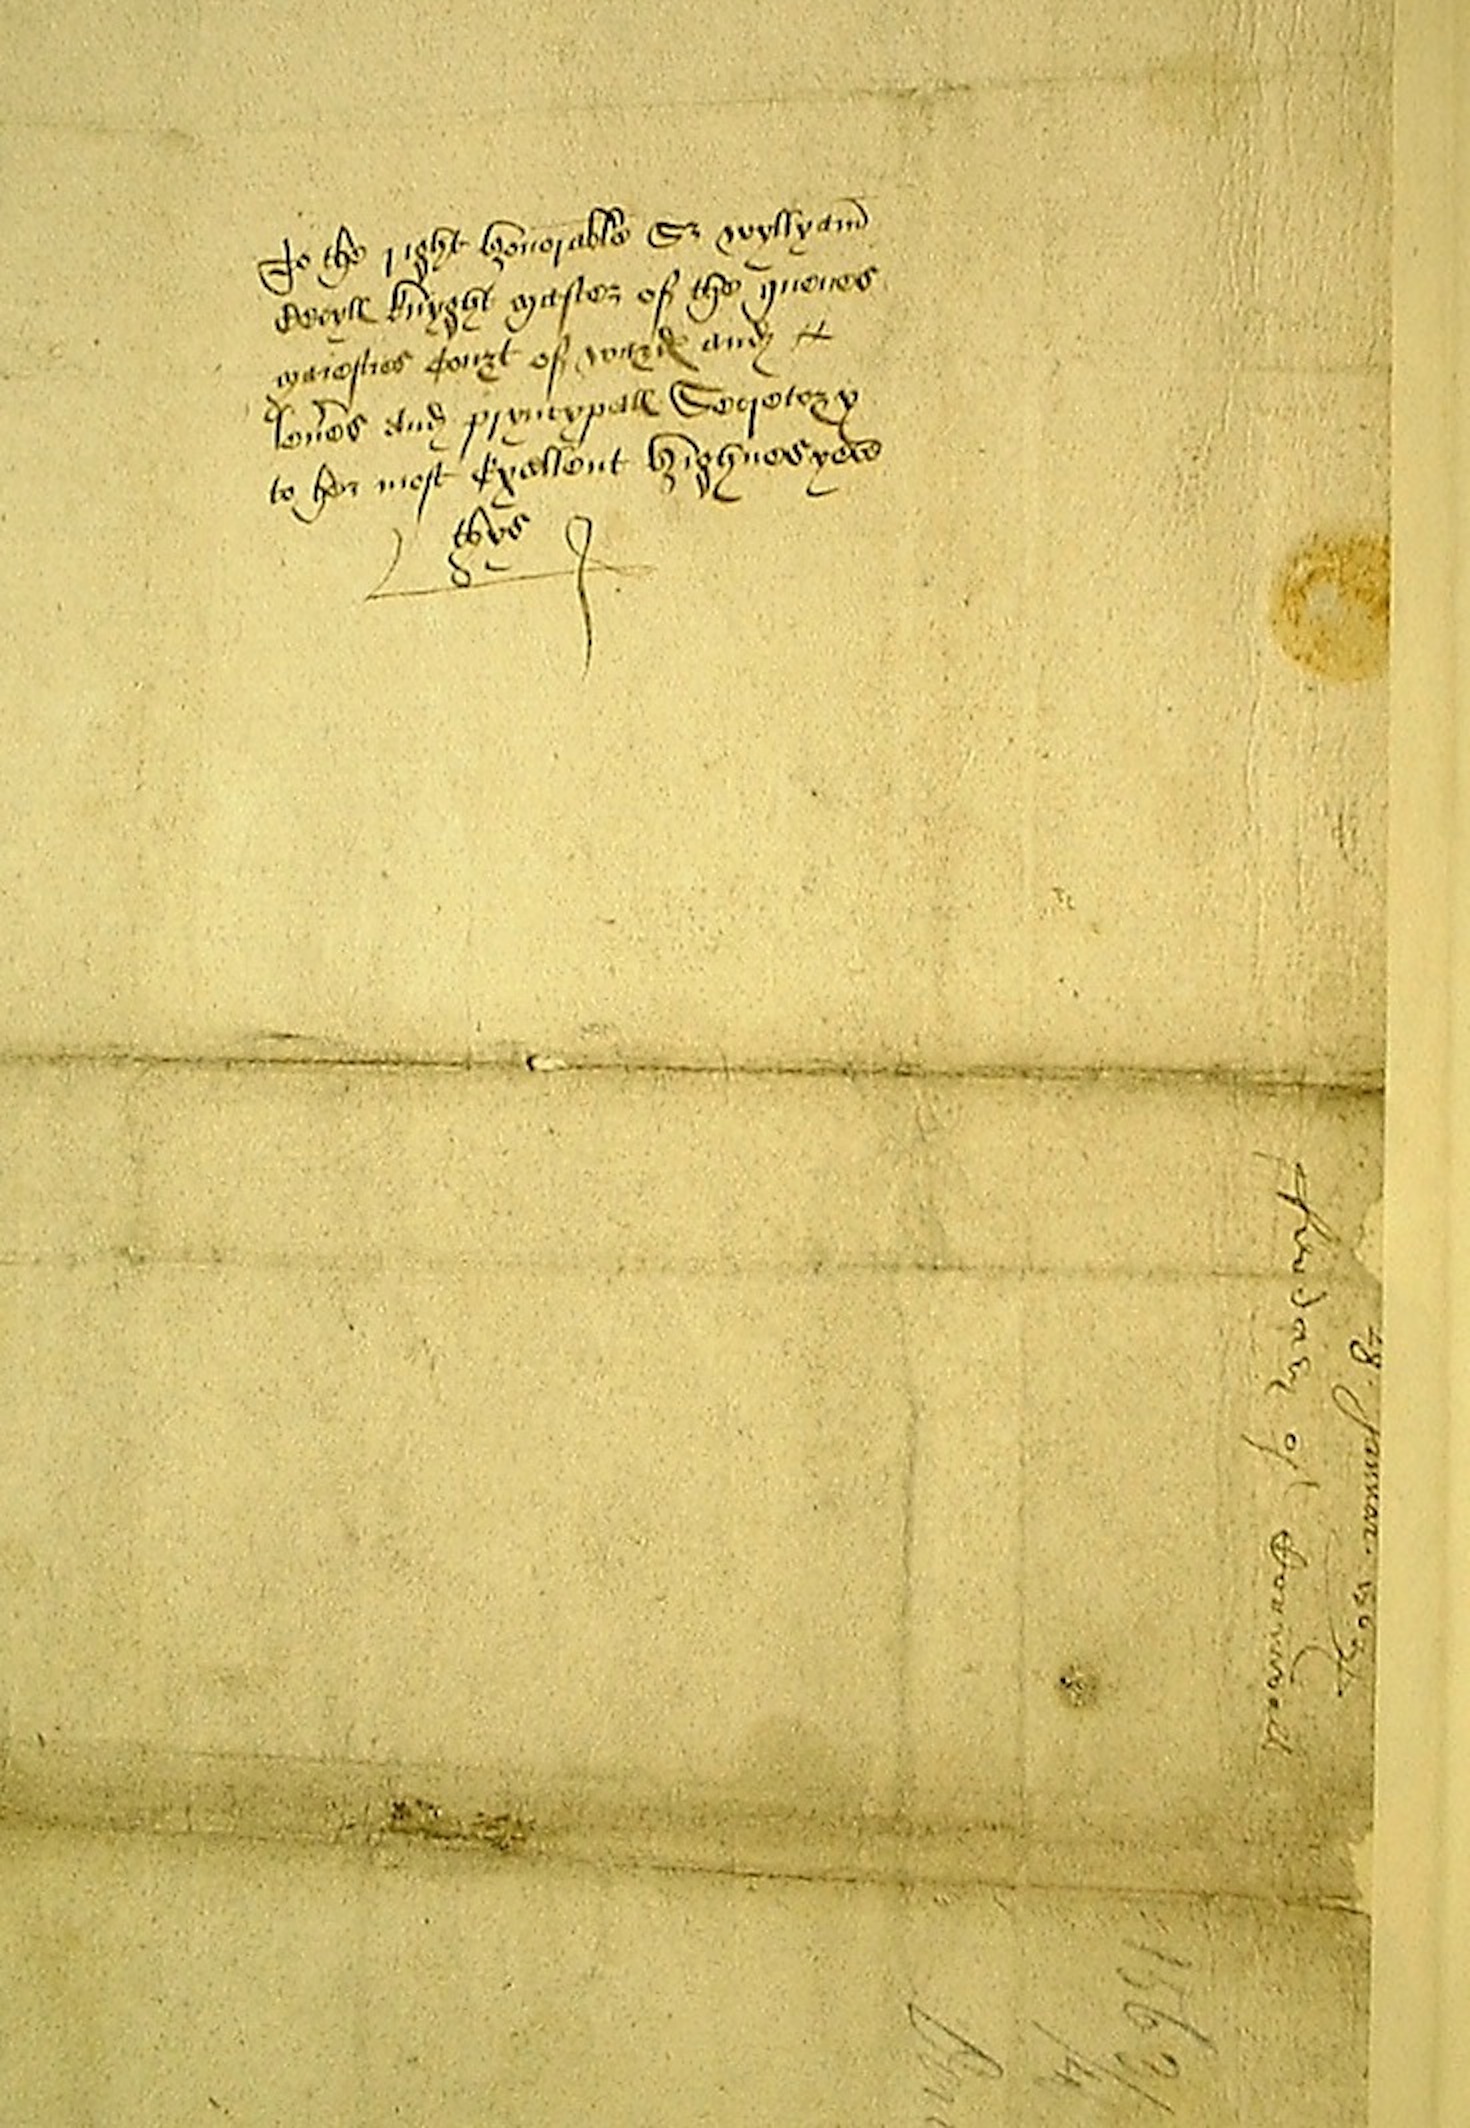 To the right honorable Sr wyllyam
Cecyll knyght master of the quenes
maiesties Court of wards and
leveres and pryncypall Secretory
to her most Exellent highnes yeve
thys
28. Januar. 1563
of Cornwall
1563/4